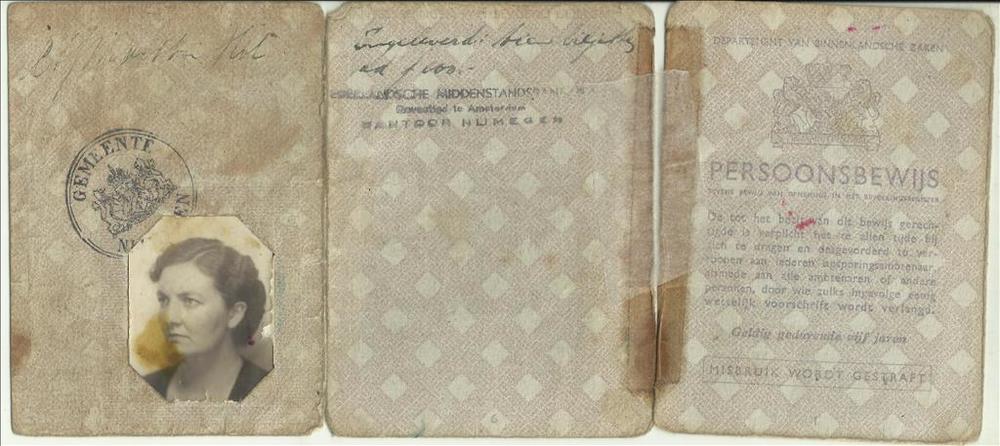 GEMEENTE
Ingeleverd:
MIDDENSTANDSBANK
Gevestigd te Amsterdam
KANTOOR NIJMEGEN
6
DEPARTEMENT VAN BINNENLANDSCHE ZAKEN
PERSOONSBEWIJS
TEVENS BEWIJS VAN OPNEMING IN HET BEVOLKINGSREGISTER
De tot het bezit van dit bewijs gerech-
tigde is verplicht het te allen tijde bij
zich te dragen en desgevorderd te ver-
toonen aan iederen opsporingsambtenaar,
alsmede aan alle ambtenaren of andere
personen, door wie zulks ingevolge eenig
wettelijk voorschrift wordt verlangd.
Geldig gedurende vijf jaren
MISBRUIK WORDT GESTRAFT